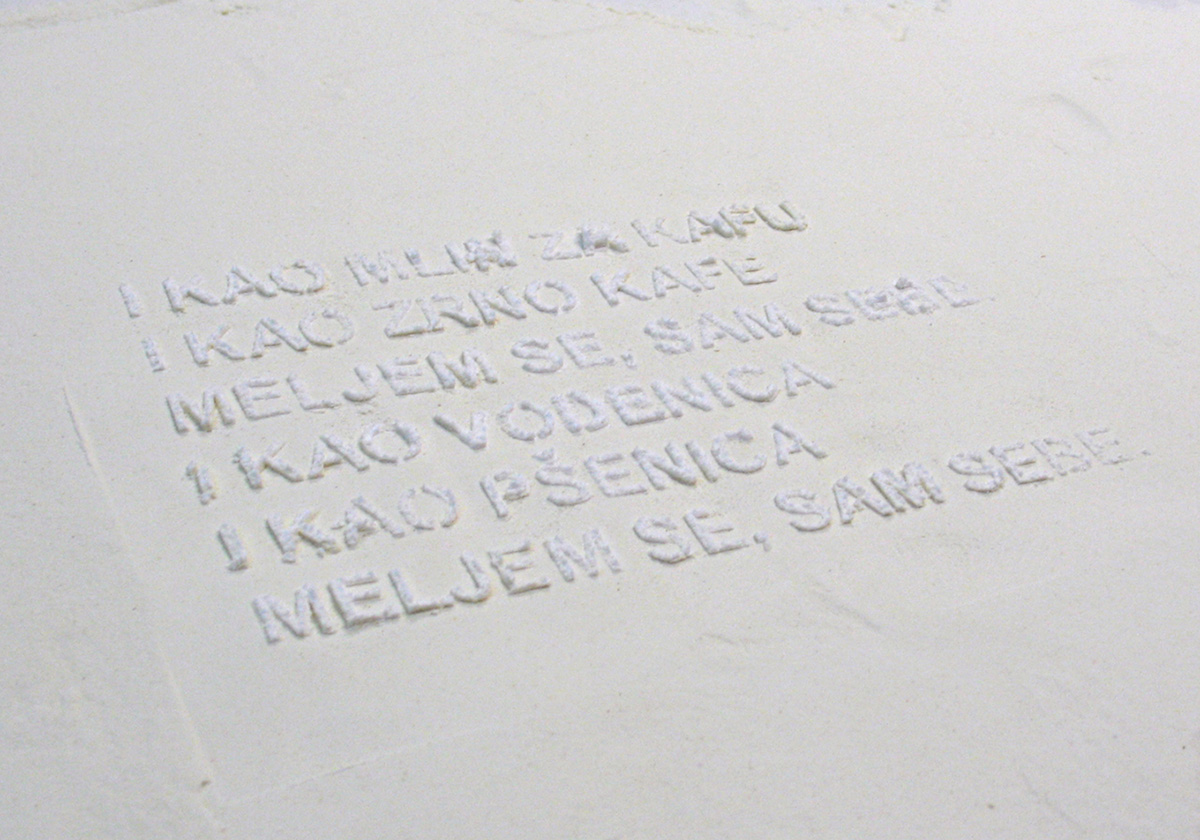 I KAO MLIN ZA KAFU
I KAO ZRNO KAFE
MELJEM SE, SAM SEBE.
I KAO VODENICA
I KAO PŠENICA
MELJEM SE, SAM SEBE.